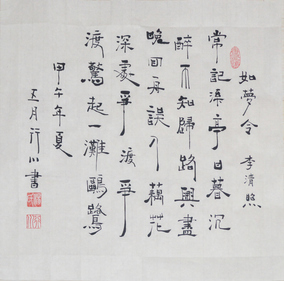 如夢令 李清照
常記溪亭日暮沉
醉不知歸路興盡
晚回舟誤入藕花
深處爭渡爭
渡驚起一灘鷗鷺
甲午年夏
五月行書